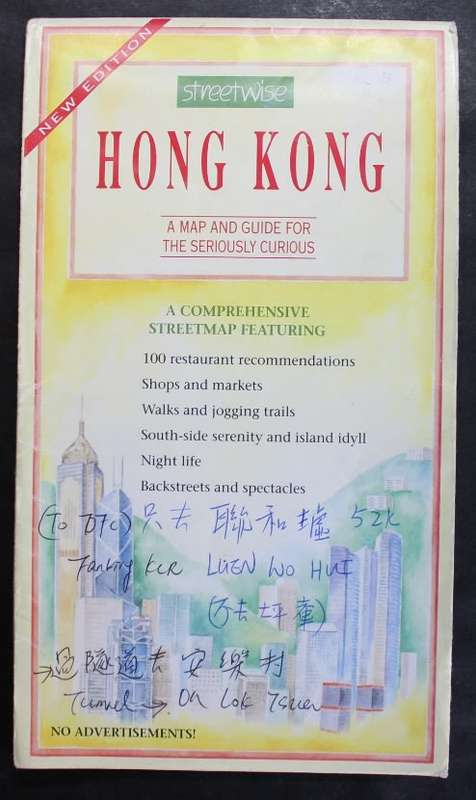 NEW EDITION
streetwise
HONG KONG
A MAP AND GUIDE FOR
THE SERIOUSLY CURIOUS
A COMPREHENSIVE
STREETMAP FEATURING
100 restaurant recommendations
Shops and markets
Walks and jogging trails
South-side serenity and island idyll
Night life
Backstreets and spectacles
(To DTC) 只去 聯和墟 52K
Fanling KCR LUEN WO HUI
(不去坪輋)
→過隧道去安樂村
Tunnel → On Lok Tsuen
NO ADVERTISEMENTS!